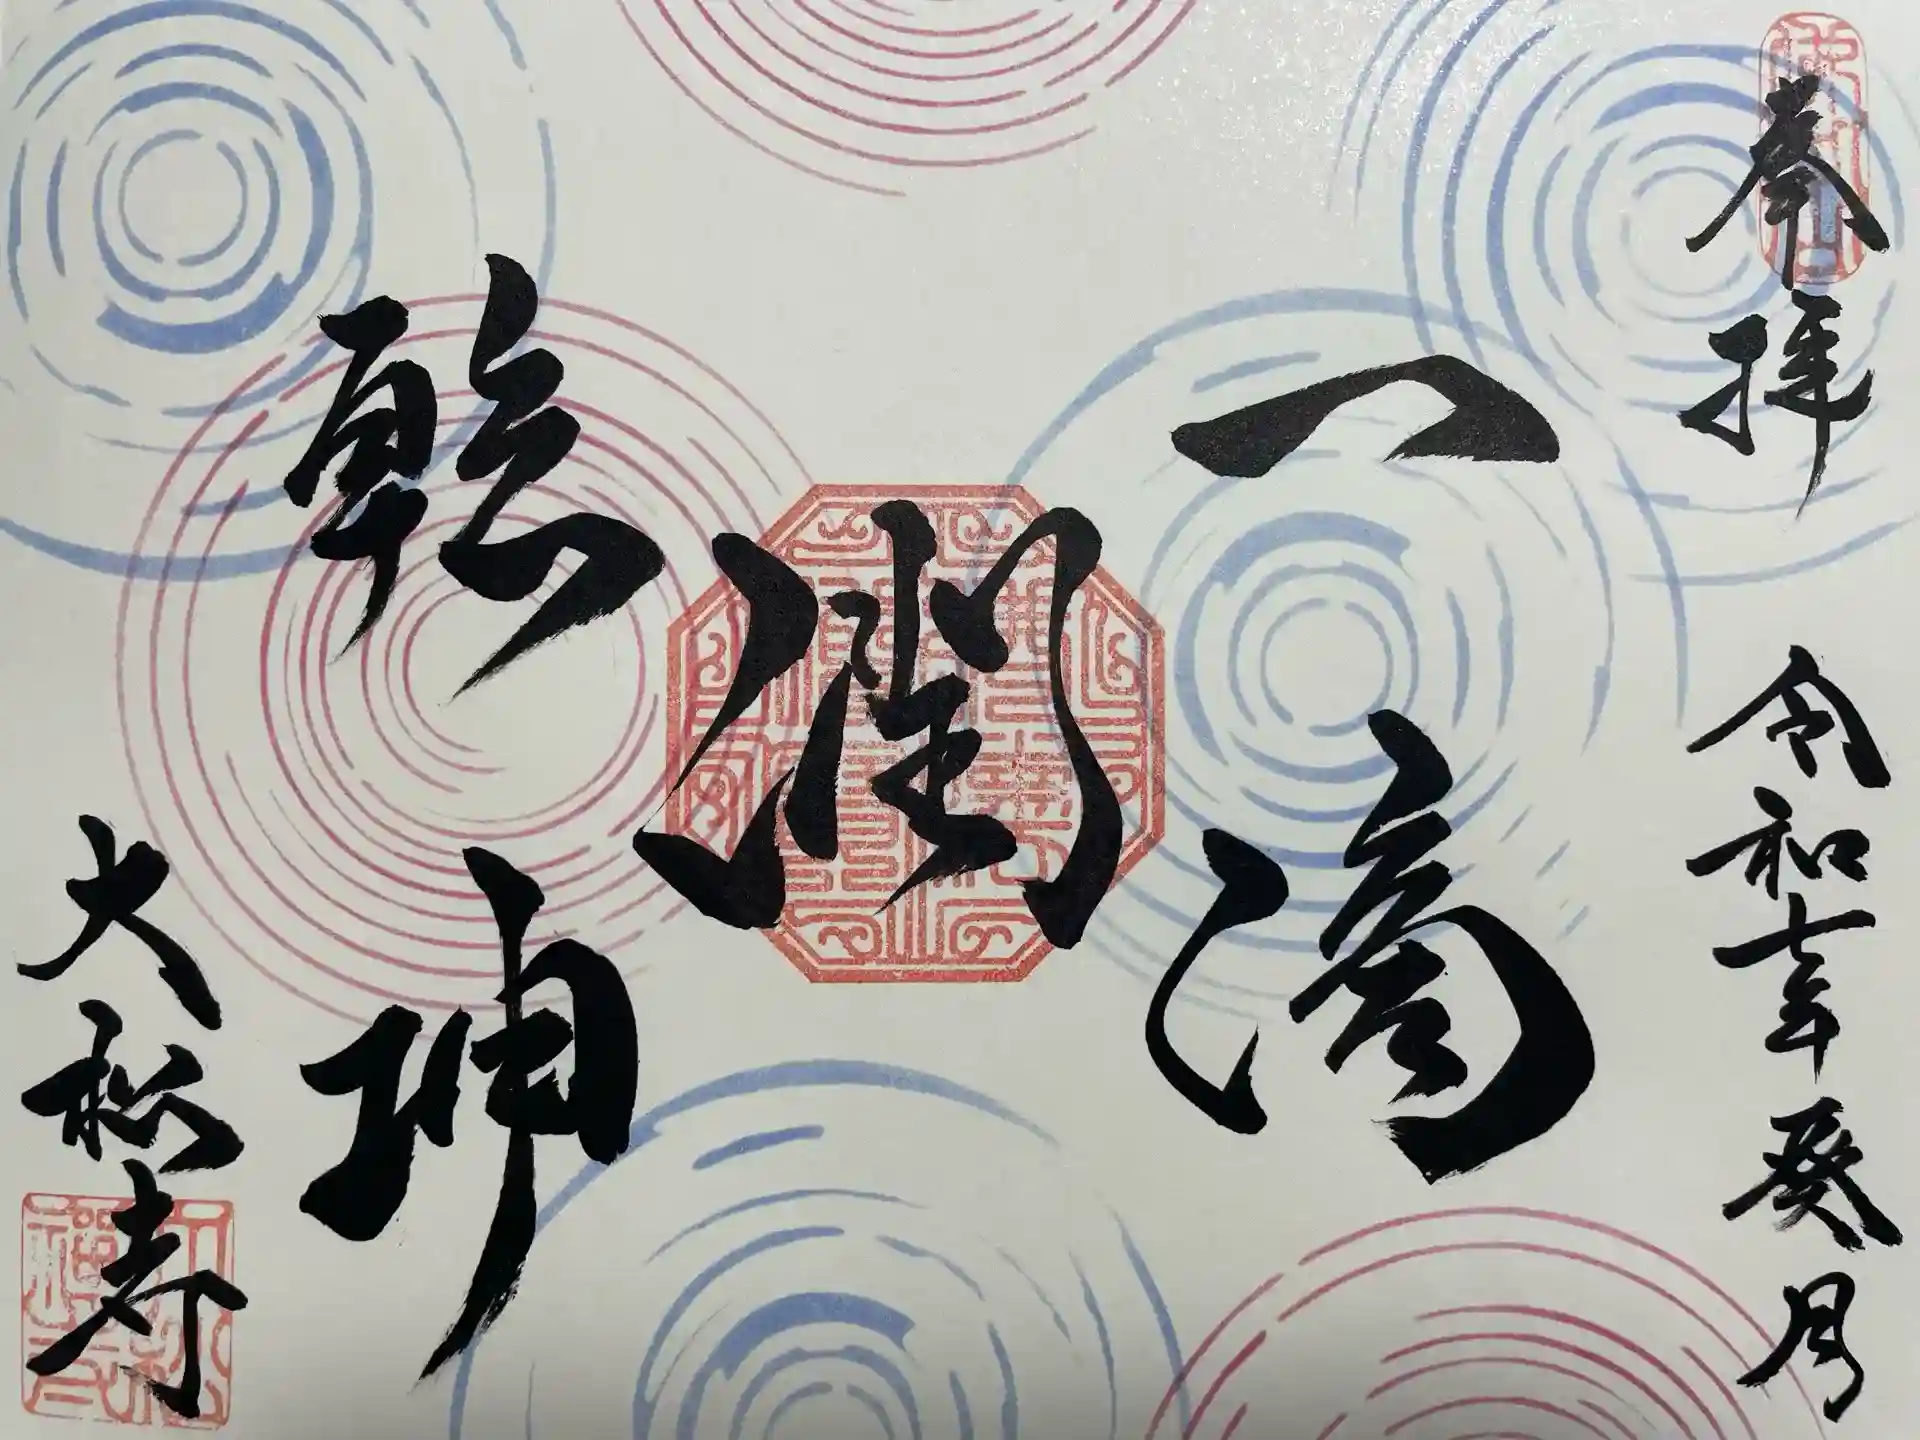 奉拝
令和七年癸月
一滴
潤
乾坤
大松寺